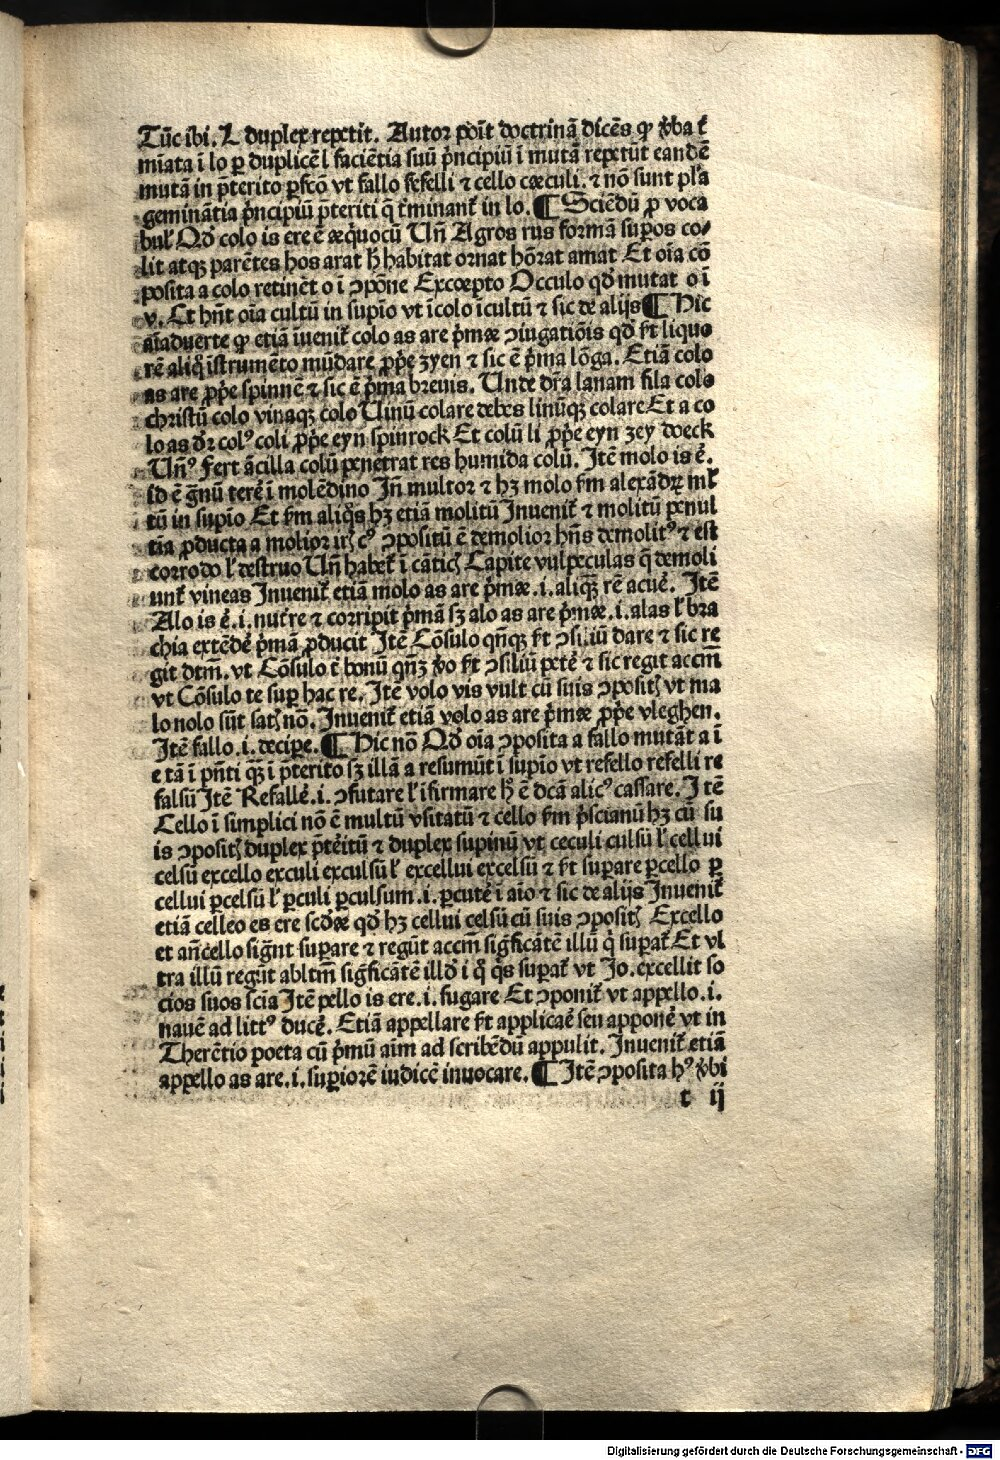 Tūc ibi. L duplex repetit. Autor poīt doctrinā dicēs qꝫ ꝟba ẗ
mīata ī lo ꝑ duplicē l faciētia suū p̄ncipiū ī mutā repetūt eandē
mutā in p̄terito ꝑfcō vt fallo fefelli ⁊ cello cæculi. ⁊ nō sunt pl'a
geminātia p̄ncipiū p̄teriti q̄ t̄minant̄ in lo. ¶ Sciēdū ꝓ voca
bul' Qd̄ colo is ere ē æq̄uocū Un̄ Agros rus formā supos co/
lit atqꝫ parētes hos arat h̄ habitat ornat hōrat amat Et oīa cō
posita a colo retinēt o ī ꝯpōne Excœpto Occulo qd̄ mutat o ī
v. Et hn̄t oīa cultū in supīo vt īcolo īcultū ⁊ sic de alijs ¶ Hic
aīaduerte qꝫ etiā īuenit̄ colo as are p̄mæ ꝯiugatiōis qd̄ ē̄t liquo
rē aliq̊ īstrumēto mūdare ꝓp̄e zyen ⁊ sic ē p̄ma lōga. Etiā colo
as are ꝓp̄e spinnē ⁊ sic ē p̄ma breuis. Unde dr̄a lanam fila colo
christū colo vinaqꝫ colo Uinū colare debes linūqꝫ colare Et a co
lo as d̄r colꝰ coli ꝓp̄e eyn spinrock Et colū li ꝓp̄e eyn zey doeck
Un̄ꝰ Fert ācilla colū penetrat res humida colū. Itē molo is ē̄.
id ē ḡnū terē̄ ī molēdino In̄ multor ⁊ hꝫ molo s̄m alexādꝝ ml'
tū in supīo Et s̄m aliq̊s hꝫ etiā molitū Inuenit̄ ⁊ molitū penul
tīa ꝓducta a molior irꝭ cꝰ ꝯpositū ē demolior hn̄s demolitꝰ ⁊ est
corrodo l' destruo Un̄ habet̄ ī cāticꝭ Capite vulpeculas q̄ demoli
unt̄ vineas Inuenit̄ etiā molo as are p̄mæ .i. aliqꝫ rē acuē̄. Itē
Alo is ē̄ .i. nut̄re ⁊ corripit p̄mā sꝫ alo as are p̄mæ .i. alas l' bra
chia extēdē̄ p̄mā ꝓducit Itē Cōsulo qn̄qꝫ ē̄t ꝯsiliū dare ⁊ sic re
git dtm̄. vt Cōsulo t̄ bonū qn̄qꝫ ꝟo ē̄t ꝯsiliū petē̄ ⁊ sic regit accm̄
vt Cōsulo te sup hac re. Itē volo vis vult cū suis ꝯpositꝭ vt ma
lo nolo sūt satꝭ nō. Inuenit̄ etiā volo as are p̄mæ ꝓp̄e vleghen.
Itē fallo .i. decipe. ¶ Hic nō Qd̄ oīa ꝯposita a fallo mutāt a ī
e tā ī p̄nti qꝫ ī p̄terito sꝫ illā a resumūt ī supīo vt refello refelli re
falsū Itē Refallē̄ .i. ꝯfutare l' īfirmare hꝰ ē dcā alicꝰ cassare. Itē
Cello ī simplici nō ē multū vsitatū ⁊ cello s̄m p̄scianū hꝫ cū su
is ꝯpositꝭ duplex p̄tēitū ⁊ duplex supinū vt ceculi culsū l' cellui
celsū excello exculi exculsū l' excellui excelsū ⁊ ē̄t suꝑare ꝑcello ꝑ
cellui ꝑcelsū l' ꝑculi ꝑculsum .i. ꝑcutē̄ ī aīo ⁊ sic de alijs Inuenit̄
etiā celleo es ere scd̄æ qd̄ hꝫ cellui celsū cū suis ꝯpositꝭ Excello
et an̄cello sign̄t suꝑare ⁊ regūt accm̄ sig̅ficātē illū q̄ suꝑat̄ Et vl
tra illū regūt abltm̄ sig̅ficātē illd̄ ī q̊ q̄s suꝑat̄ vt Jo. excellit so
cios suos scīa Itē pello is ere .i. fugare Et ꝯponit̄ vt appello .i.
nauē ad littꝰ ducē̄. Etiā appellare ē̄t applicāē seu apponē̄ vt in
Therētio poeta cū p̄mū aīm ad scribēdū appulit. Inuenit̄ etiā
appello as are .i. suꝑiorē iudicē inuocare. ¶ Itē ꝯposita hꝰ ꝟbi
t ij
Digitalisierung gefördert durch die Deutsche Forschungsgemeinschaft - DFG